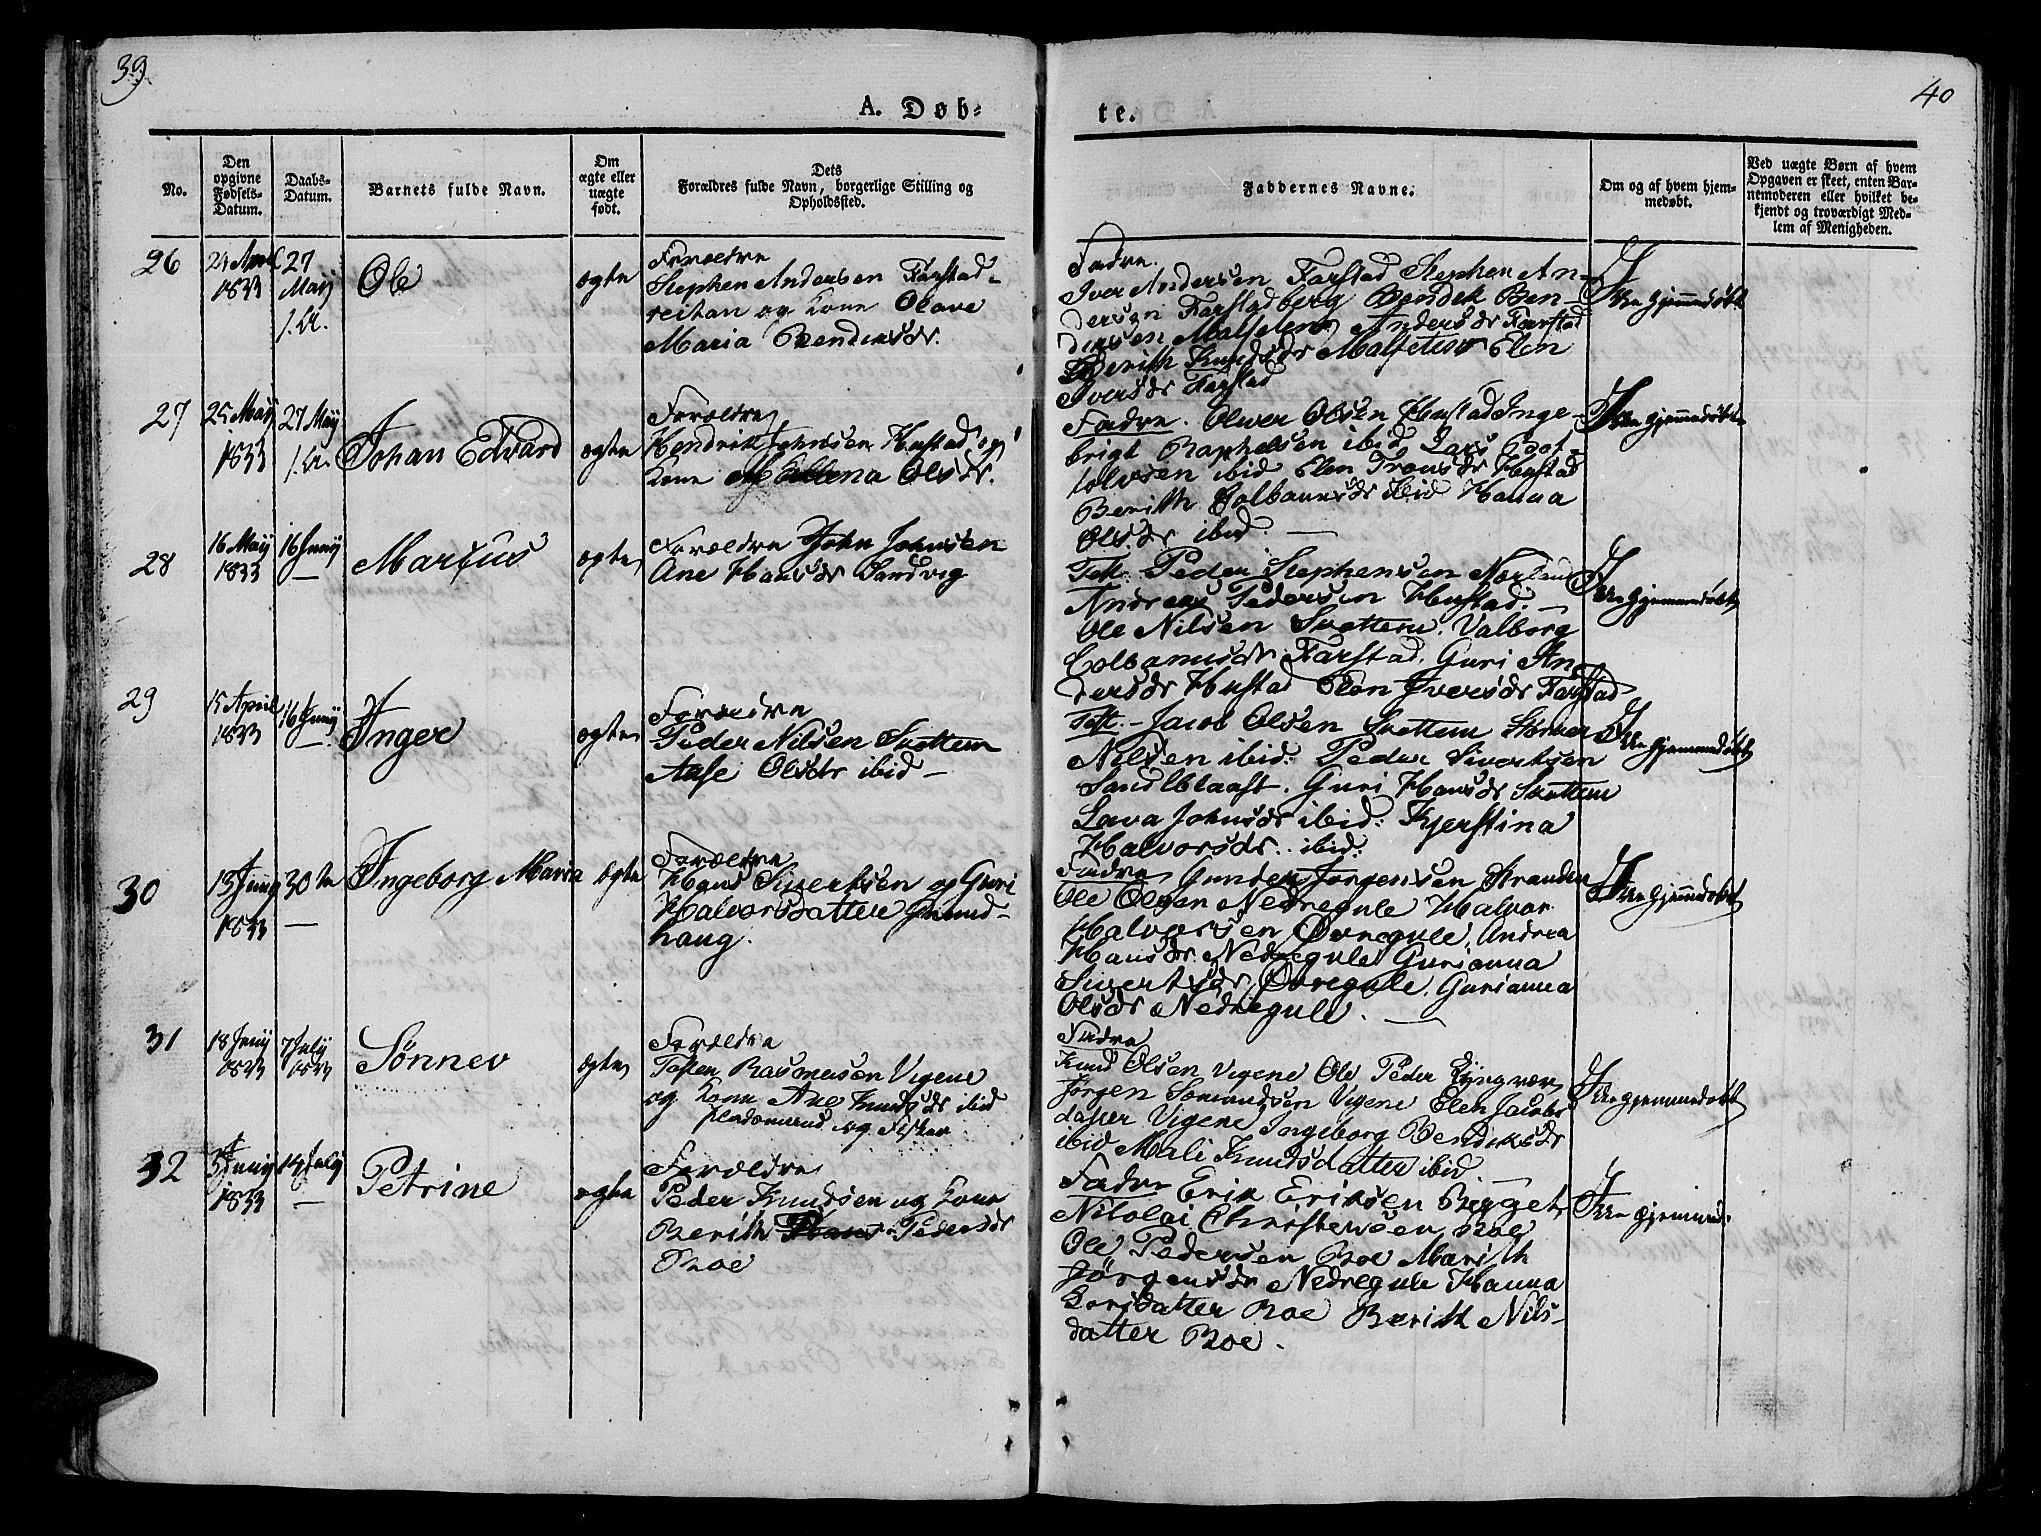 39
40
A. Døb-
te.
No.
Den
opgivne
Fødsels-
Datum.
Daabs-
Datum.
Barnets fulde Navn.
Om
ægte eller
uægte
født.
Dets
Forældres fulde Navn, borgerlige Stilling og
Opholdssted.
Faddernes Navne.
Om og af hvem hjem-
medøbt.
Ved uægte Børn af hvem
Opgaven er skeet, enten Bar-
nemoderen eller hvilket be-
kjendt og troværdigt Med-
lem af Menigheden.
26
April
1833
27
Maij
Ole
ægte
Forældre
Stephen Andersen Farstad-
reitan og Kone Olave
Maria Bendixsdr.
Fadre.
Iver Andersen Farstad Stephen An-
dersen Farstadberg Bendek Ben-
Andersdr Farstad
Berith Knudsdr Elen
Iversdr Farstad
Ikke hjemmedøbt
27
25 Maij
1833
27 Maij
Johan Edvard
ægte
Forældre
Hendrik Johnsen Hustad og
Kone Olsdr.
Fadre. Oliver Olsen Hustad Inge-
brigt ibid Lars Bot-
tolvsen ibid Elen Hustad
Berith Colbanusdr ibid Hanna
Olsdr ibid. —
Ikke hjemmedøbt
28
16 Maij
1833
16 Junij
—
Marcus
ægte
Forældre John Johnsen
Ane Hansdr Sandvig
Test: Peder Stephensen
Andreas Pedersen Hustad. —
Ole Nilsen Skottem. Valborg
Colbanusdr Farstad. Guri An-
dersdr Hustad Elen Iversdr Farstad
Ikke hjemmedøbt
29
15 April
1833
16 Junij
—
Inger
ægte
Forældre
Peder Nilsen Skottem
Aase Olsdr ibid —
Test. — Jacob Olsen Skottem
Nilsen ibid: Peder Sivertsen
Guri Hansdr Skottem
Lava Johnsdr ibid: Kjerstina
Halvorsdr.. ibid:
Ikke hjemmedøbt
30
13 Junij
1833
30te
—
Ingeborg Maria
ægte
Forældre
Hans Sivertsen og Guri
Halvorsdatter
haug.
Fadre Gunder Jørgensen Stranden
Ole Olsen Nedregule Halvor
Halvorsen Øvregule. Andrea
Hansdr Nedregule Gurianna
Sivertsdr Øvregule. Gurianna
Olsdr Nedregule. —
Ikke hjemmedøbt
31
18 Junij
1833
7 July
1833
Sønnev
ægte
Forældre
Tosten Rasmussen Vigene
og Kone Ane Knudsdr ibid
og Fisker
Fadre
Knud Olsen Vigene Ole Peder
Jørgen Vigene Elen Jacobs
datter Vigene Ingeborg Bendiksdr
ibid Mali Knudsdatter ibid
Ikke hjemmedøbt
32
Junij
1833
14 July
—
Petrine
ægte
Forældre
Peder Knudsen og Kone
Berith Pedersdr
Boe
Fadre Erik Eriksen Berget
Nikolai Christensen Boe
Ole Pedersen Boe Marith
Jørgensdr Nedregule Hanna
Larsdatter Boe Berith Nils-
datter Boe.
Ikke